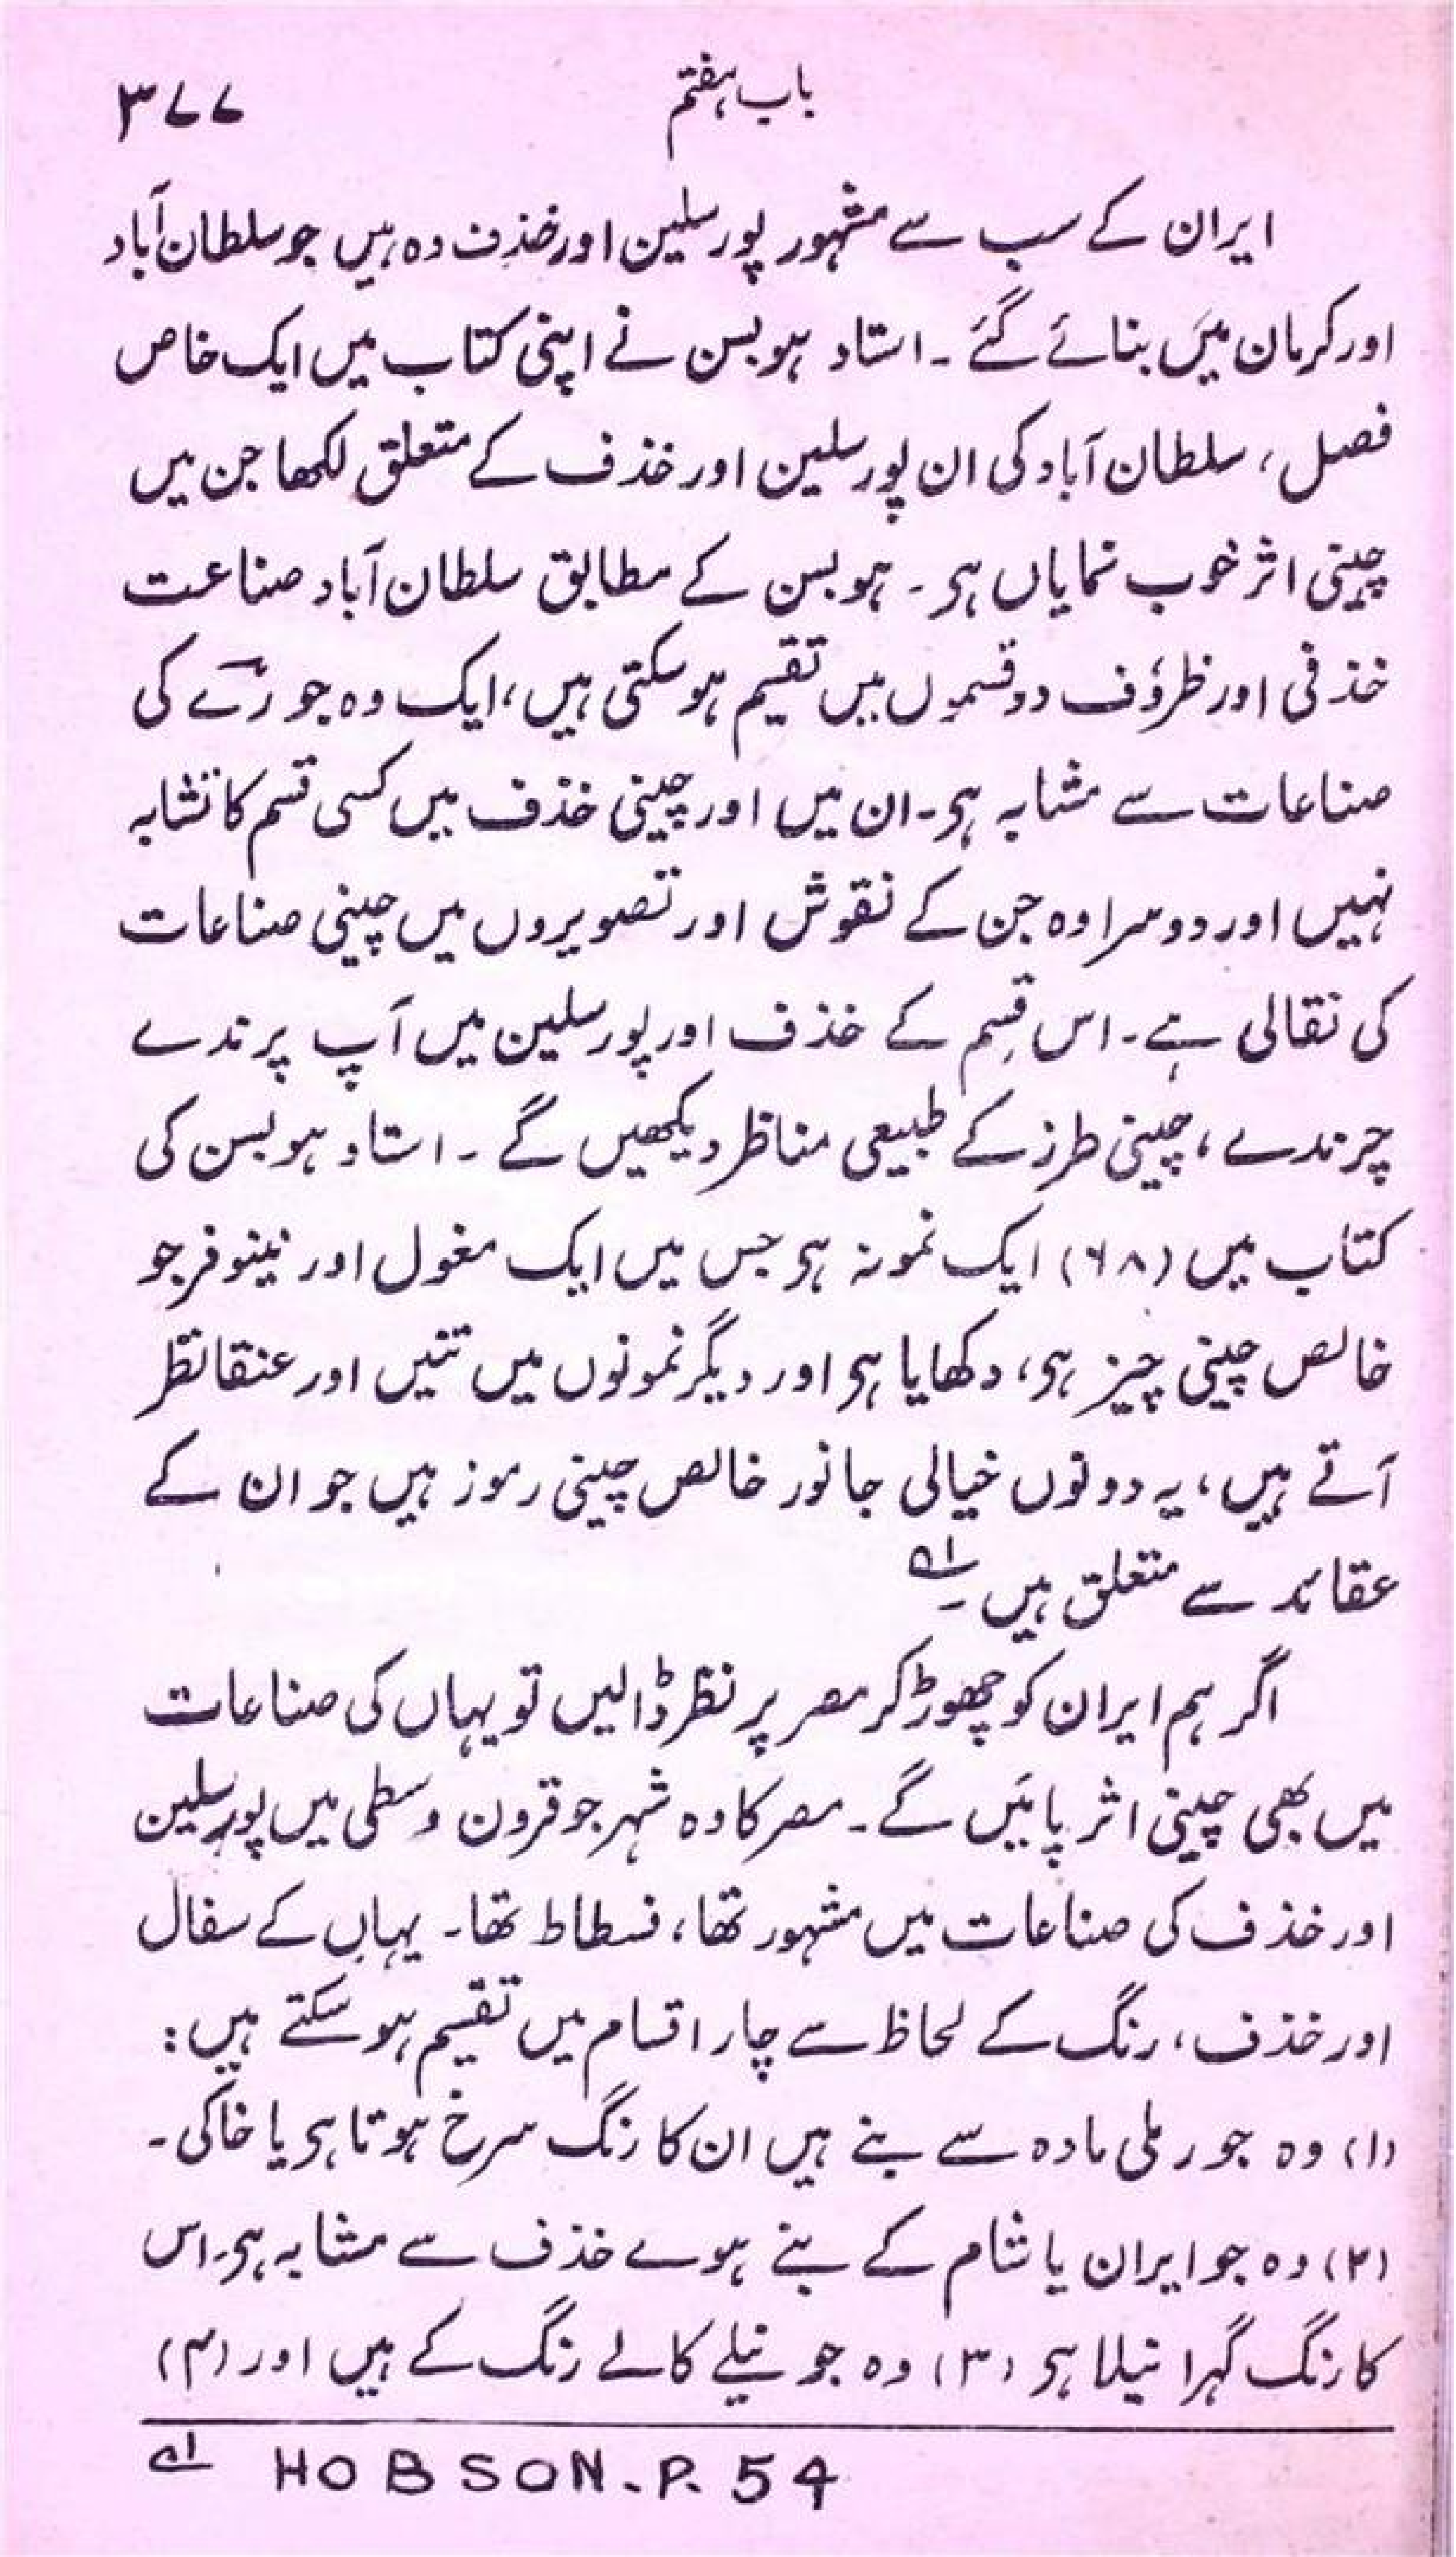 باب ہفتم ۳۷۷
ایران کے سب سے مشہور پورسلین اور خذف وہ ہیں جو سلطان آباد
اور کرمان میں بنائے گئے ۔ استاد ہوبسن نے اپنی کتاب میں ایک خاص
فصل، سلطان آباد کی ان پورسلین اور خذف کے متعلق لکھا جن میں
چینی اثر خوب نمایاں ہی ۔ ہوبسن کے مطابق سلطان آباد صناعت
خذفی اور ظروف دو قسموں میں تقیم ہو سکتی ہیں، ایک وہ جو رے کی
صناعات سے مشابہ ہی ۔ ان میں اور چینی خذف میں کسی قسم کا تشابہ
نہیں اور دوسرا وہ جن کے نقوش اور تصویروں میں چینی صناعات
کی نقالی ہے ۔ اس قسم کے خذف اور پورسلین میں آپ پرندے
چرندے، چینی طرز کے طبیعی مناظر دیکھیں گے ۔ استاد ہوبسن کی
کتاب میں (۶۸) ایک نمونہ ہی جس میں ایک مغول اور نینوفر جو
خالص چینی چیز ہی، دکھایا ہی اور دیگر نمونوں میں تنیں اور عنقا نظر
آتے ہیں، یہ دونوں خیالی جانور خالص چینی رموز ہیں جو ان کے
عقائد سے متعلق ہیں ۔ لہ
اگر ہم ایران کو چھوڑ کر مصر پر نظر ڈالیں تو یہاں کی صناعات
میں بھی چینی اثر پائیں گے ۔ مصر کا وہ شہر جو قرون وسطی میں پورسلین
اور خذف کی صناعات میں مشہور تھا، فسطاط تھا ۔ یہاں کے سفال
اور خذف، رنگ کے لحاظ سے چار اقسام میں تقیم ہو سکتے ہیں :
(۱) وہ جو رملی مادہ سے بنے ہیں ان کا رنگ سرخ ہوتا ہی یا خاکی ۔
(۲) وہ جو ایران یا شام کے بنے ہوے خذف سے مشابہ ہی ۔ اس
کا رنگ گہرا نیلا ہی (۳) وہ جو نیلے کالے رنگ کے ہیں اور (۴)
لہ HOBSON. P. 54